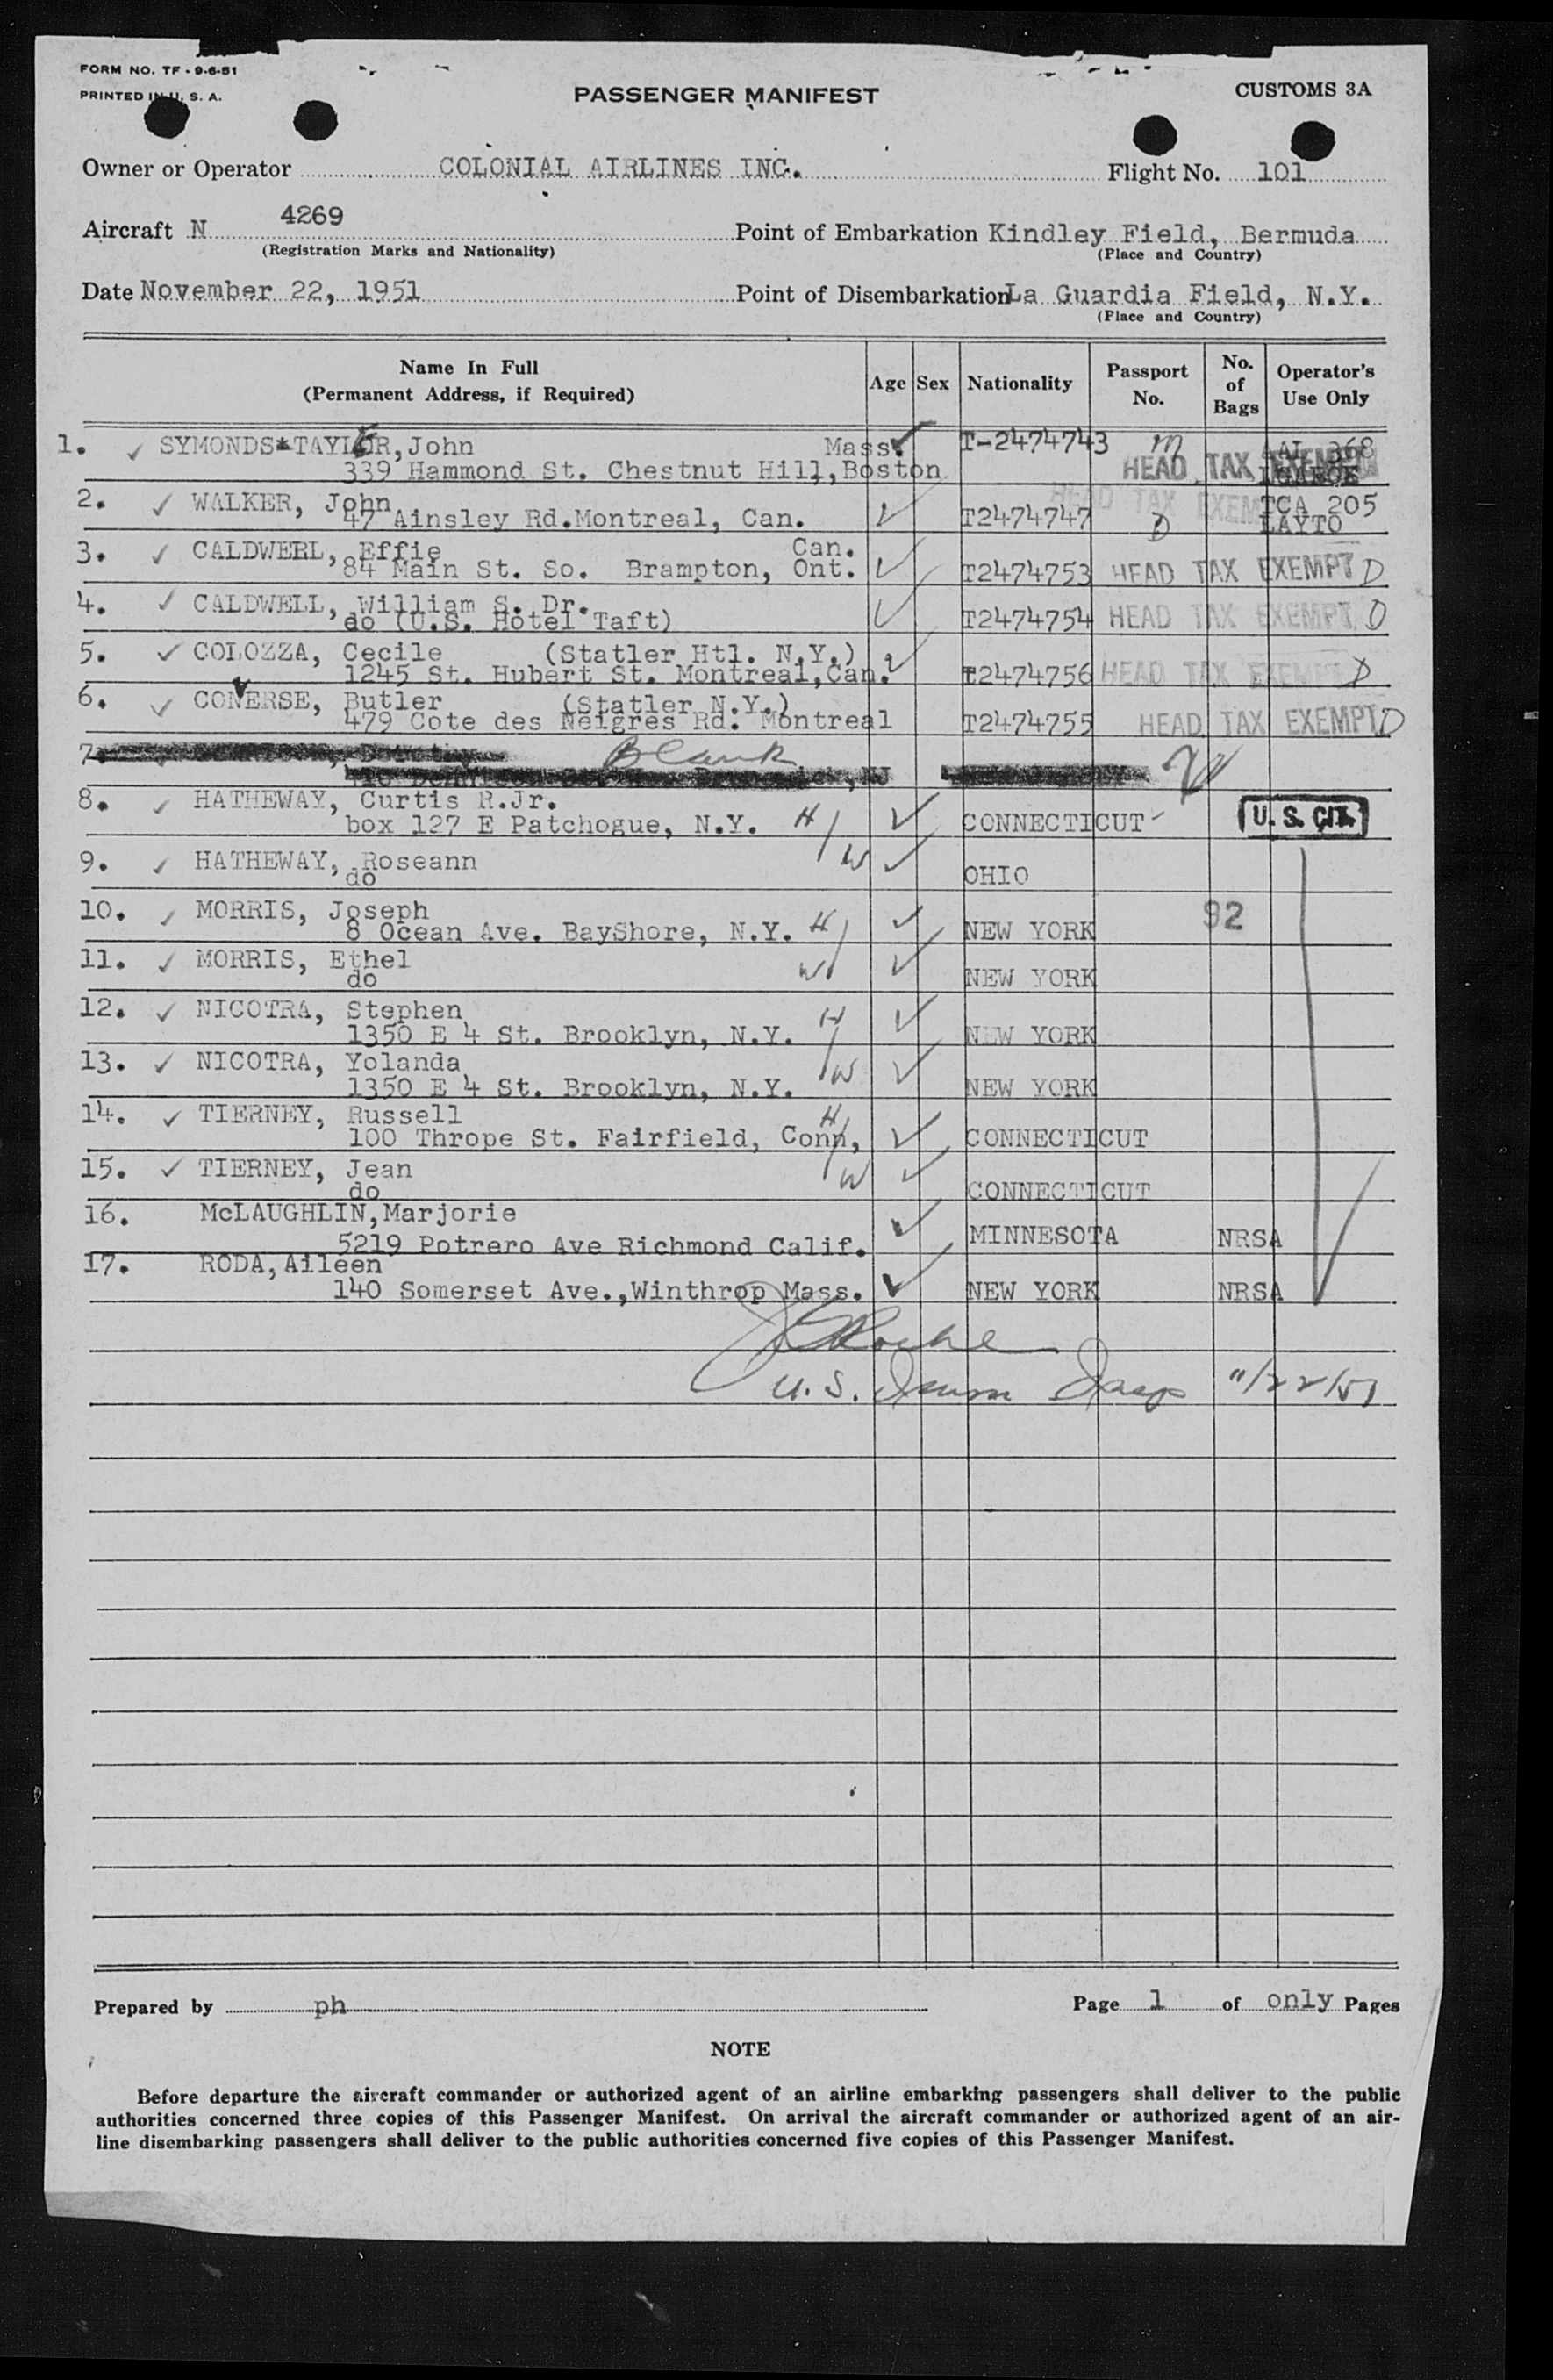 FORM NO. TF - 9-6-51
PRINTED IN U. S. A.
PASSENGER MANIFEST
CUSTOMS 3A
Owner or Operator COLONIAL AIRLINES INC. Flight No. 101
Aircraft N 4269 Point of Embarkation Kindley Field, Bermuda
(Registration Marks and Nationality) (Place and Country)
Date November 22, 1951 Point of Disembarkation La Guardia Field, N.Y.
(Place and Country)
Name In Full (Permanent Address, if Required) Age Sex Nationality Passport No. No. of Bags Operator's Use Only
1. ✓ SYMONDS*TAYLOR, John Mass. ✓ T-2474743 m AAL 368
339 Hammond St. Chestnut Hill, Boston HEAD TAX EXEMPT
2. ✓ WALKER, John HEAD TAX EXEM TCA 205
47 Ainsley Rd. Montreal, Can. ✓ T2474747 D LAYTO
3. ✓ CALDWERL, Effie Can.
84 Main St. So. Brampton, Ont. ✓ T2474753 HEAD TAX EXEMPT D
4. ✓ CALDWELL, William S. Dr.
do (U.S. Hotel Taft) ✓ T2474754 HEAD TAX EXEMPT D
5. ✓ COLOZZA, Cecile (Statler Htl. N.Y.) ✓
1245 St. Hubert St. Montreal, Can. T2474756 HEAD TAX EXEMPT D
6. ✓ CONVERSE, Butler (Statler N.Y.)
479 Cote des Neigres Rd. Montreal T2474755 HEAD TAX EXEMPT D
7. Blank
NJ
8. ✓ HATHEWAY, Curtis R.Jr.
box 127 E Patchogue, N.Y. H ✓ CONNECTICUT U. S. CIT.
9. ✓ HATHEWAY, Roseann W ✓
do OHIO
10. ✓ MORRIS, Joseph 92
8 Ocean Ave. BayShore, N.Y. H ✓ NEW YORK
11. ✓ MORRIS, Ethel W ✓
do NEW YORK
12. ✓ NICOTRA, Stephen H ✓
1350 E 4 St. Brooklyn, N.Y. NEW YORK
13. ✓ NICOTRA, Yolanda W ✓
1350 E 4 St. Brooklyn, N.Y. NEW YORK
14. ✓ TIERNEY, Russell H
100 Thrope St. Fairfield, Conn, ✓ CONNECTICUT
15. ✓ TIERNEY, Jean W ✓
do CONNECTICUT
16. McLAUGHLIN, Marjorie ✓
5219 Potrero Ave Richmond Calif. MINNESOTA NRSA
17. RODA, Aileen
140 Somerset Ave., Winthrop Mass. ✓ NEW YORK NRSA
Roche
U.S. Imm Insp 11/22/51
Prepared by ph Page 1 of only Pages
NOTE
Before departure the aircraft commander or authorized agent of an airline embarking passengers shall deliver to the public
authorities concerned three copies of this Passenger Manifest. On arrival the aircraft commander or authorized agent of an air-
line disembarking passengers shall deliver to the public authorities concerned five copies of this Passenger Manifest.